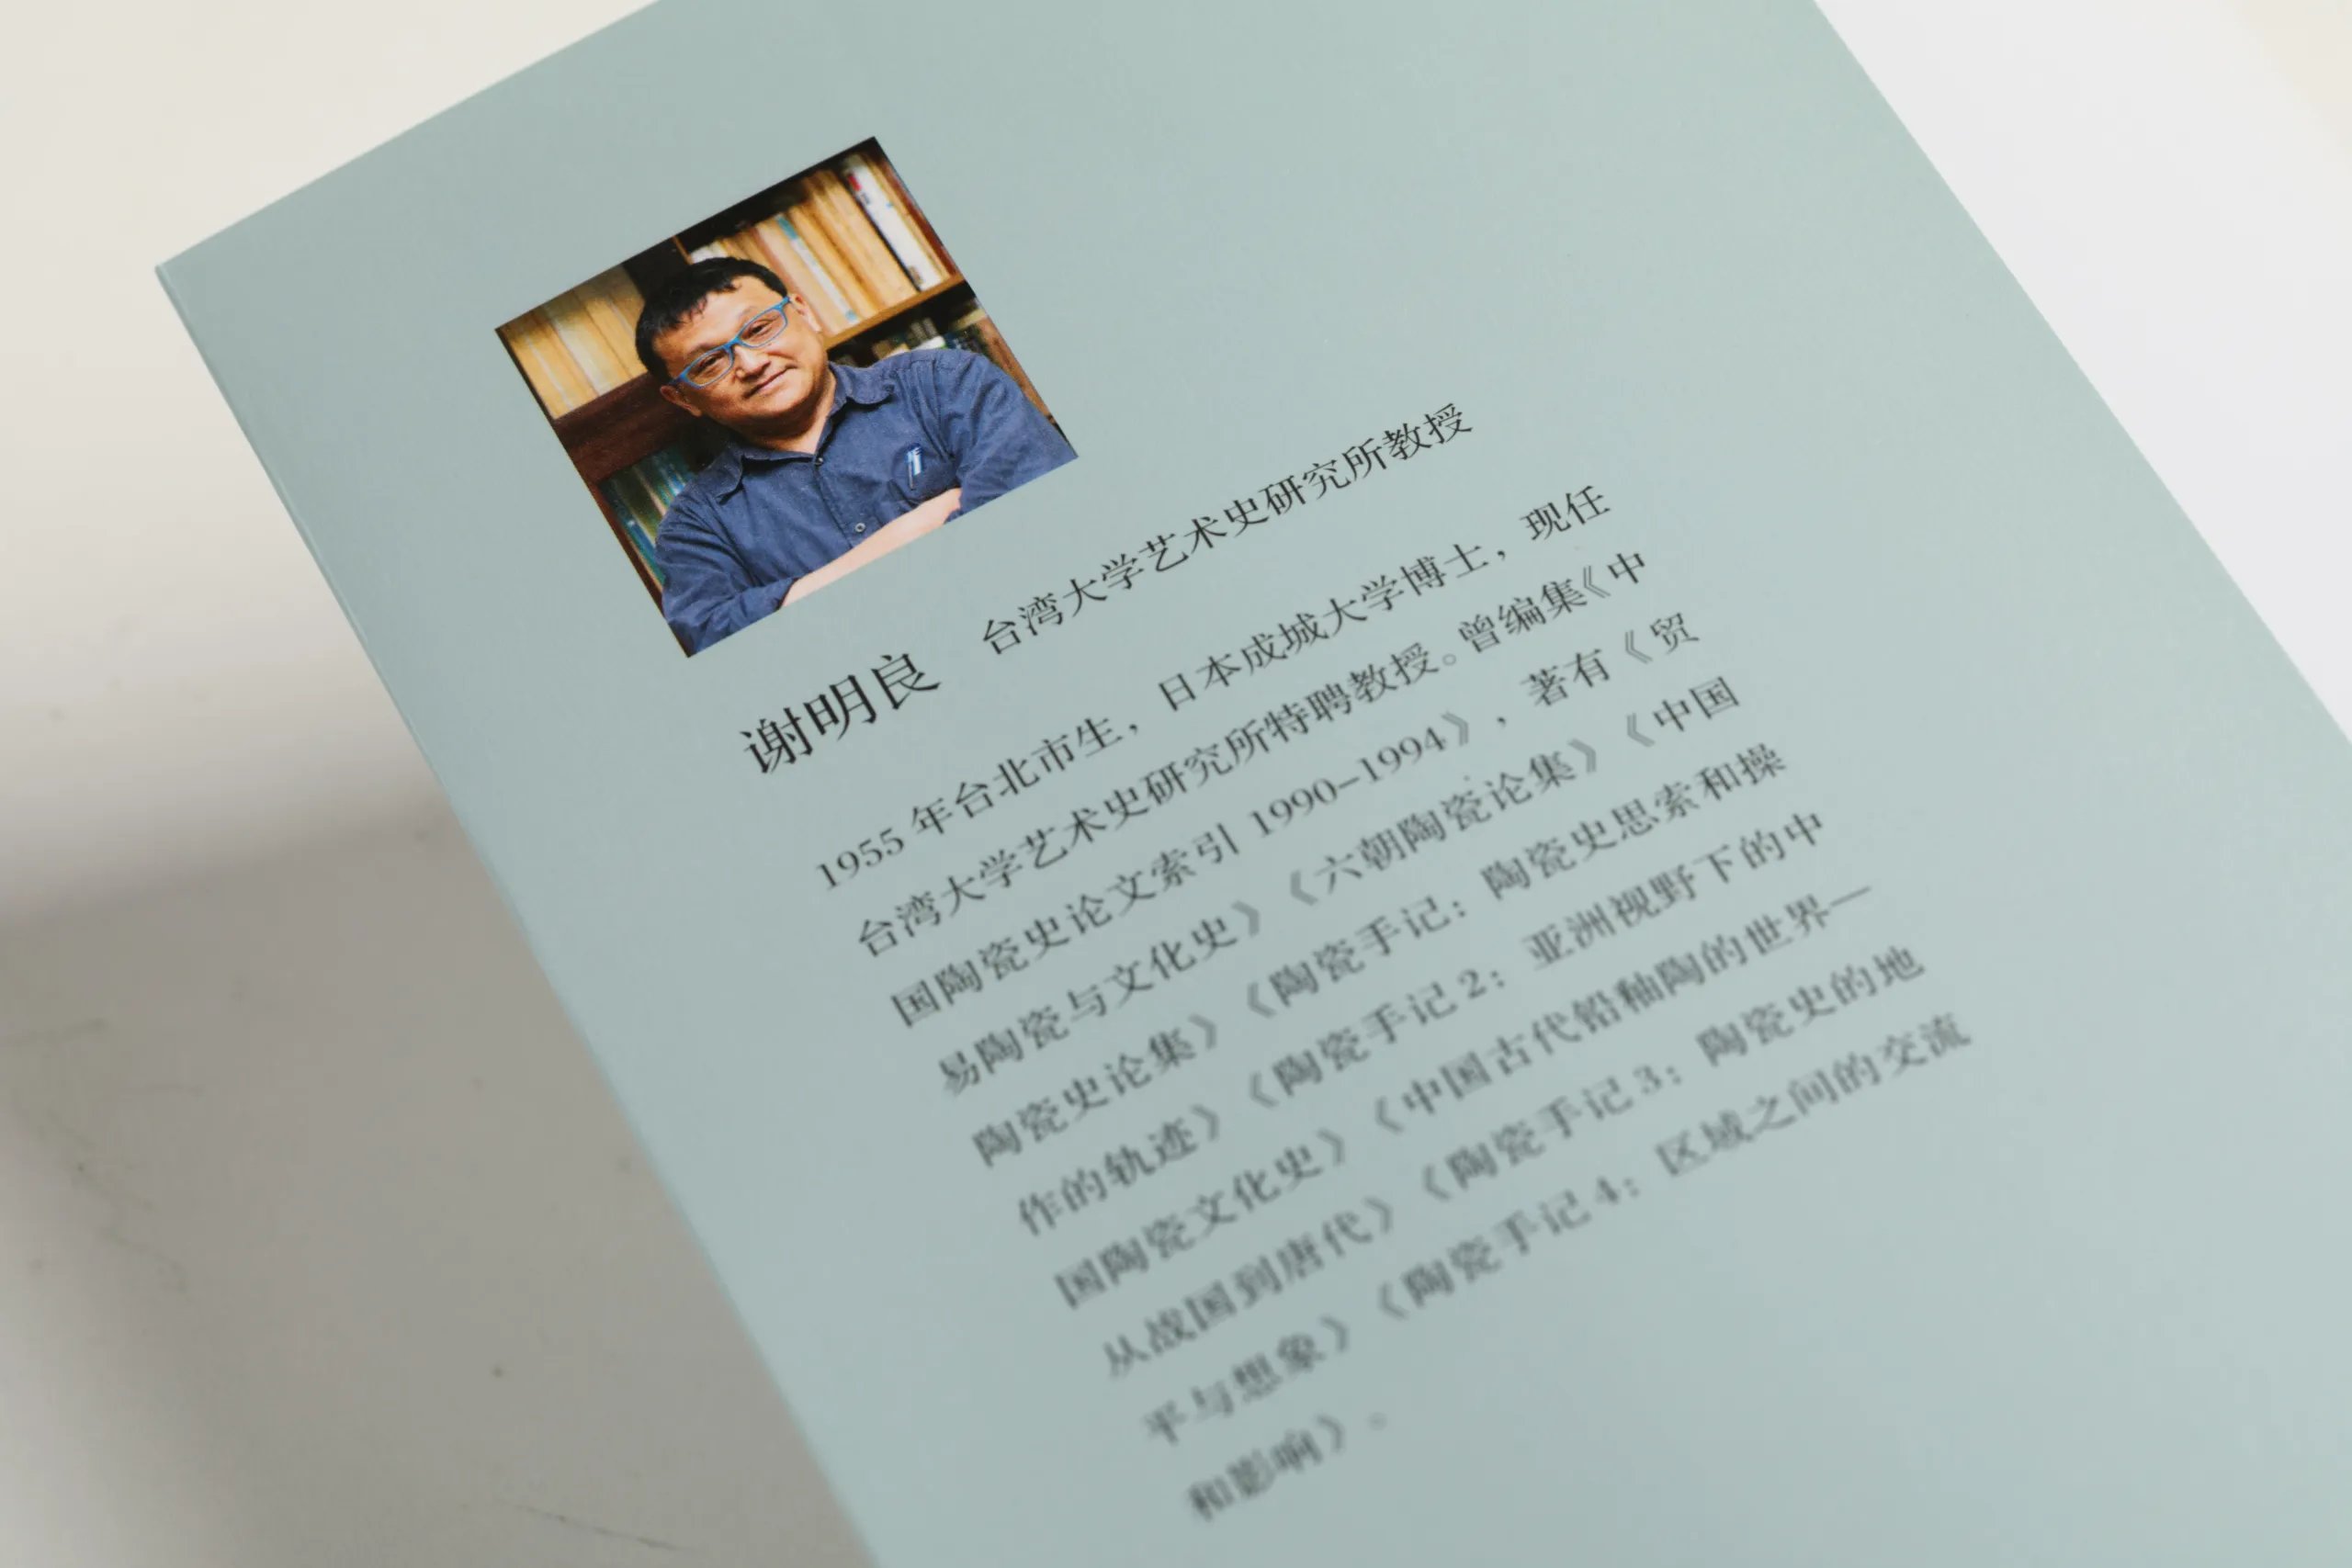 谢明良 台湾大学艺术史研究所教授
1955 年台北市生，日本成城大学博士，现任
台湾大学艺术史研究所特聘教授。曾编集《中
国陶瓷史论文索引 1990–1994》，著有《贸
易陶瓷与文化史》《六朝陶瓷论集》《中国
陶瓷史论集》《陶瓷手记：陶瓷史思索和操
作的轨迹》《陶瓷手记 2：亚洲视野下的中
国陶瓷文化史》《中国古代铅釉陶的世界—
从战国到唐代》《陶瓷手记 3：陶瓷史的地
平与想象》《陶瓷手记 4：区域之间的交流
和影响》。